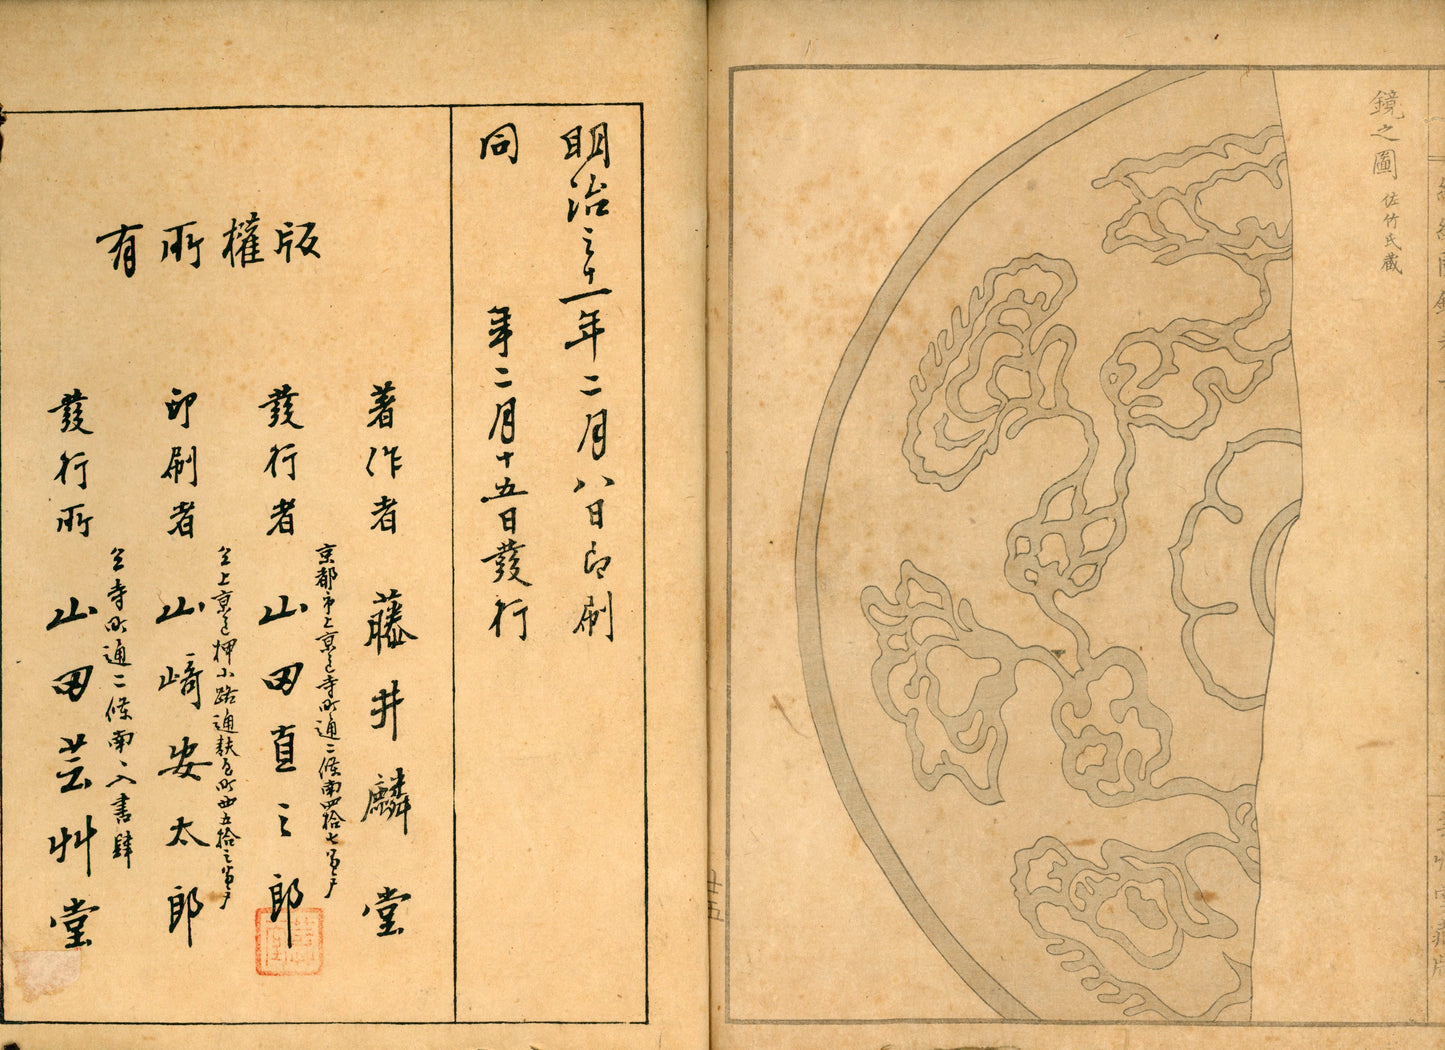 鏡之圖 佐竹氏藏
明治三十一年二月八日印刷
同 年二月十五日發行
版權所有
著作者 藤井麟堂
京都市上京區寺町通二條南四拾七番戸
發行者 山田直三郎
仝上京區押小路通麩屋町西五拾三番戸
印刷者 山﨑安太郎
仝寺町通二條南へ入書肆
發行所 山田芸艸堂